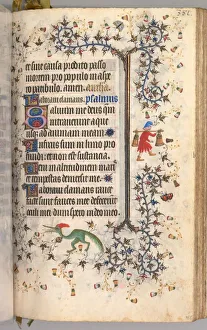 et sine causa prodito passo
mortem pro populo in aspe
ro patibulo. amen. an͞tha.
Laboraui clamans. psalmus
Saluum me deus qui
intrauerunt aque
usq; ad animam meam
Infixus sum in limo pro
fundi: et non est substantia.
Veni in altitudinem maris et
tempestas demersit me.
Laboraui clamans rauce
facte sunt fauces mee defecerūt
oculi mei dum spero in deū meū